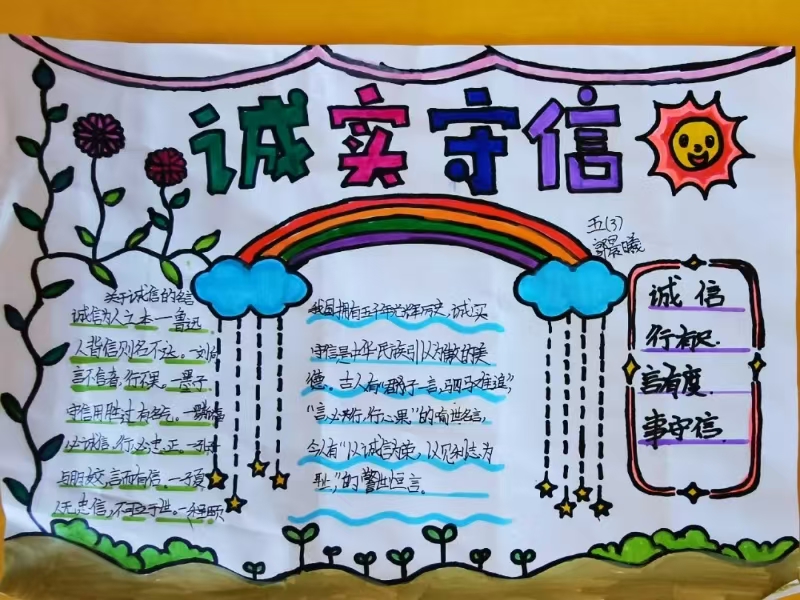 诚实守信
五(3)
郭晨曦
关于诚信的名言
诚信为人之本——鲁迅
人背信则名不达。—刘向
言不信者,行不果。—墨子
守信用胜过有名气。—
必诚信,行必忠正。—孔子
与朋友交,言而有信。—子夏
人无忠信,不可立于世。—程颐
我国拥有五千年光辉历史,诚实
守信是中华民族引以为傲的美
德。古人有“君子一言,驷马难追”
“言必行,行必果”的喻世名言,
今人有“以诚信为荣,以见利忘为
耻”的警世恒言。
诚信
行有尺
言有度
事守信